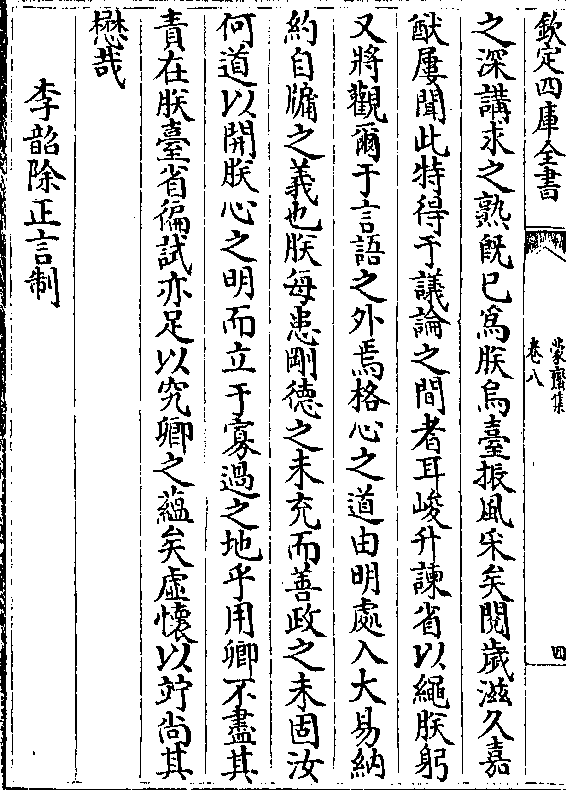 欽定四庫全書
蒙齋集
卷八
四
之深講求之熟既已為朕烏臺振風采矣閱歲滋久嘉
猷屢聞此特得于議論之間者耳峻升諫省以繩朕躬
又將觀爾于言語之外焉格心之道由明處入大易納
約自牖之義也朕每患剛德之未充而善政之未固汝
何道以開朕心之明而立于寡過之地乎用卿不盡其
責在朕臺省徧試亦足以究卿之蘊矣虛懷以竚尚其
懋哉
李韶除正言制